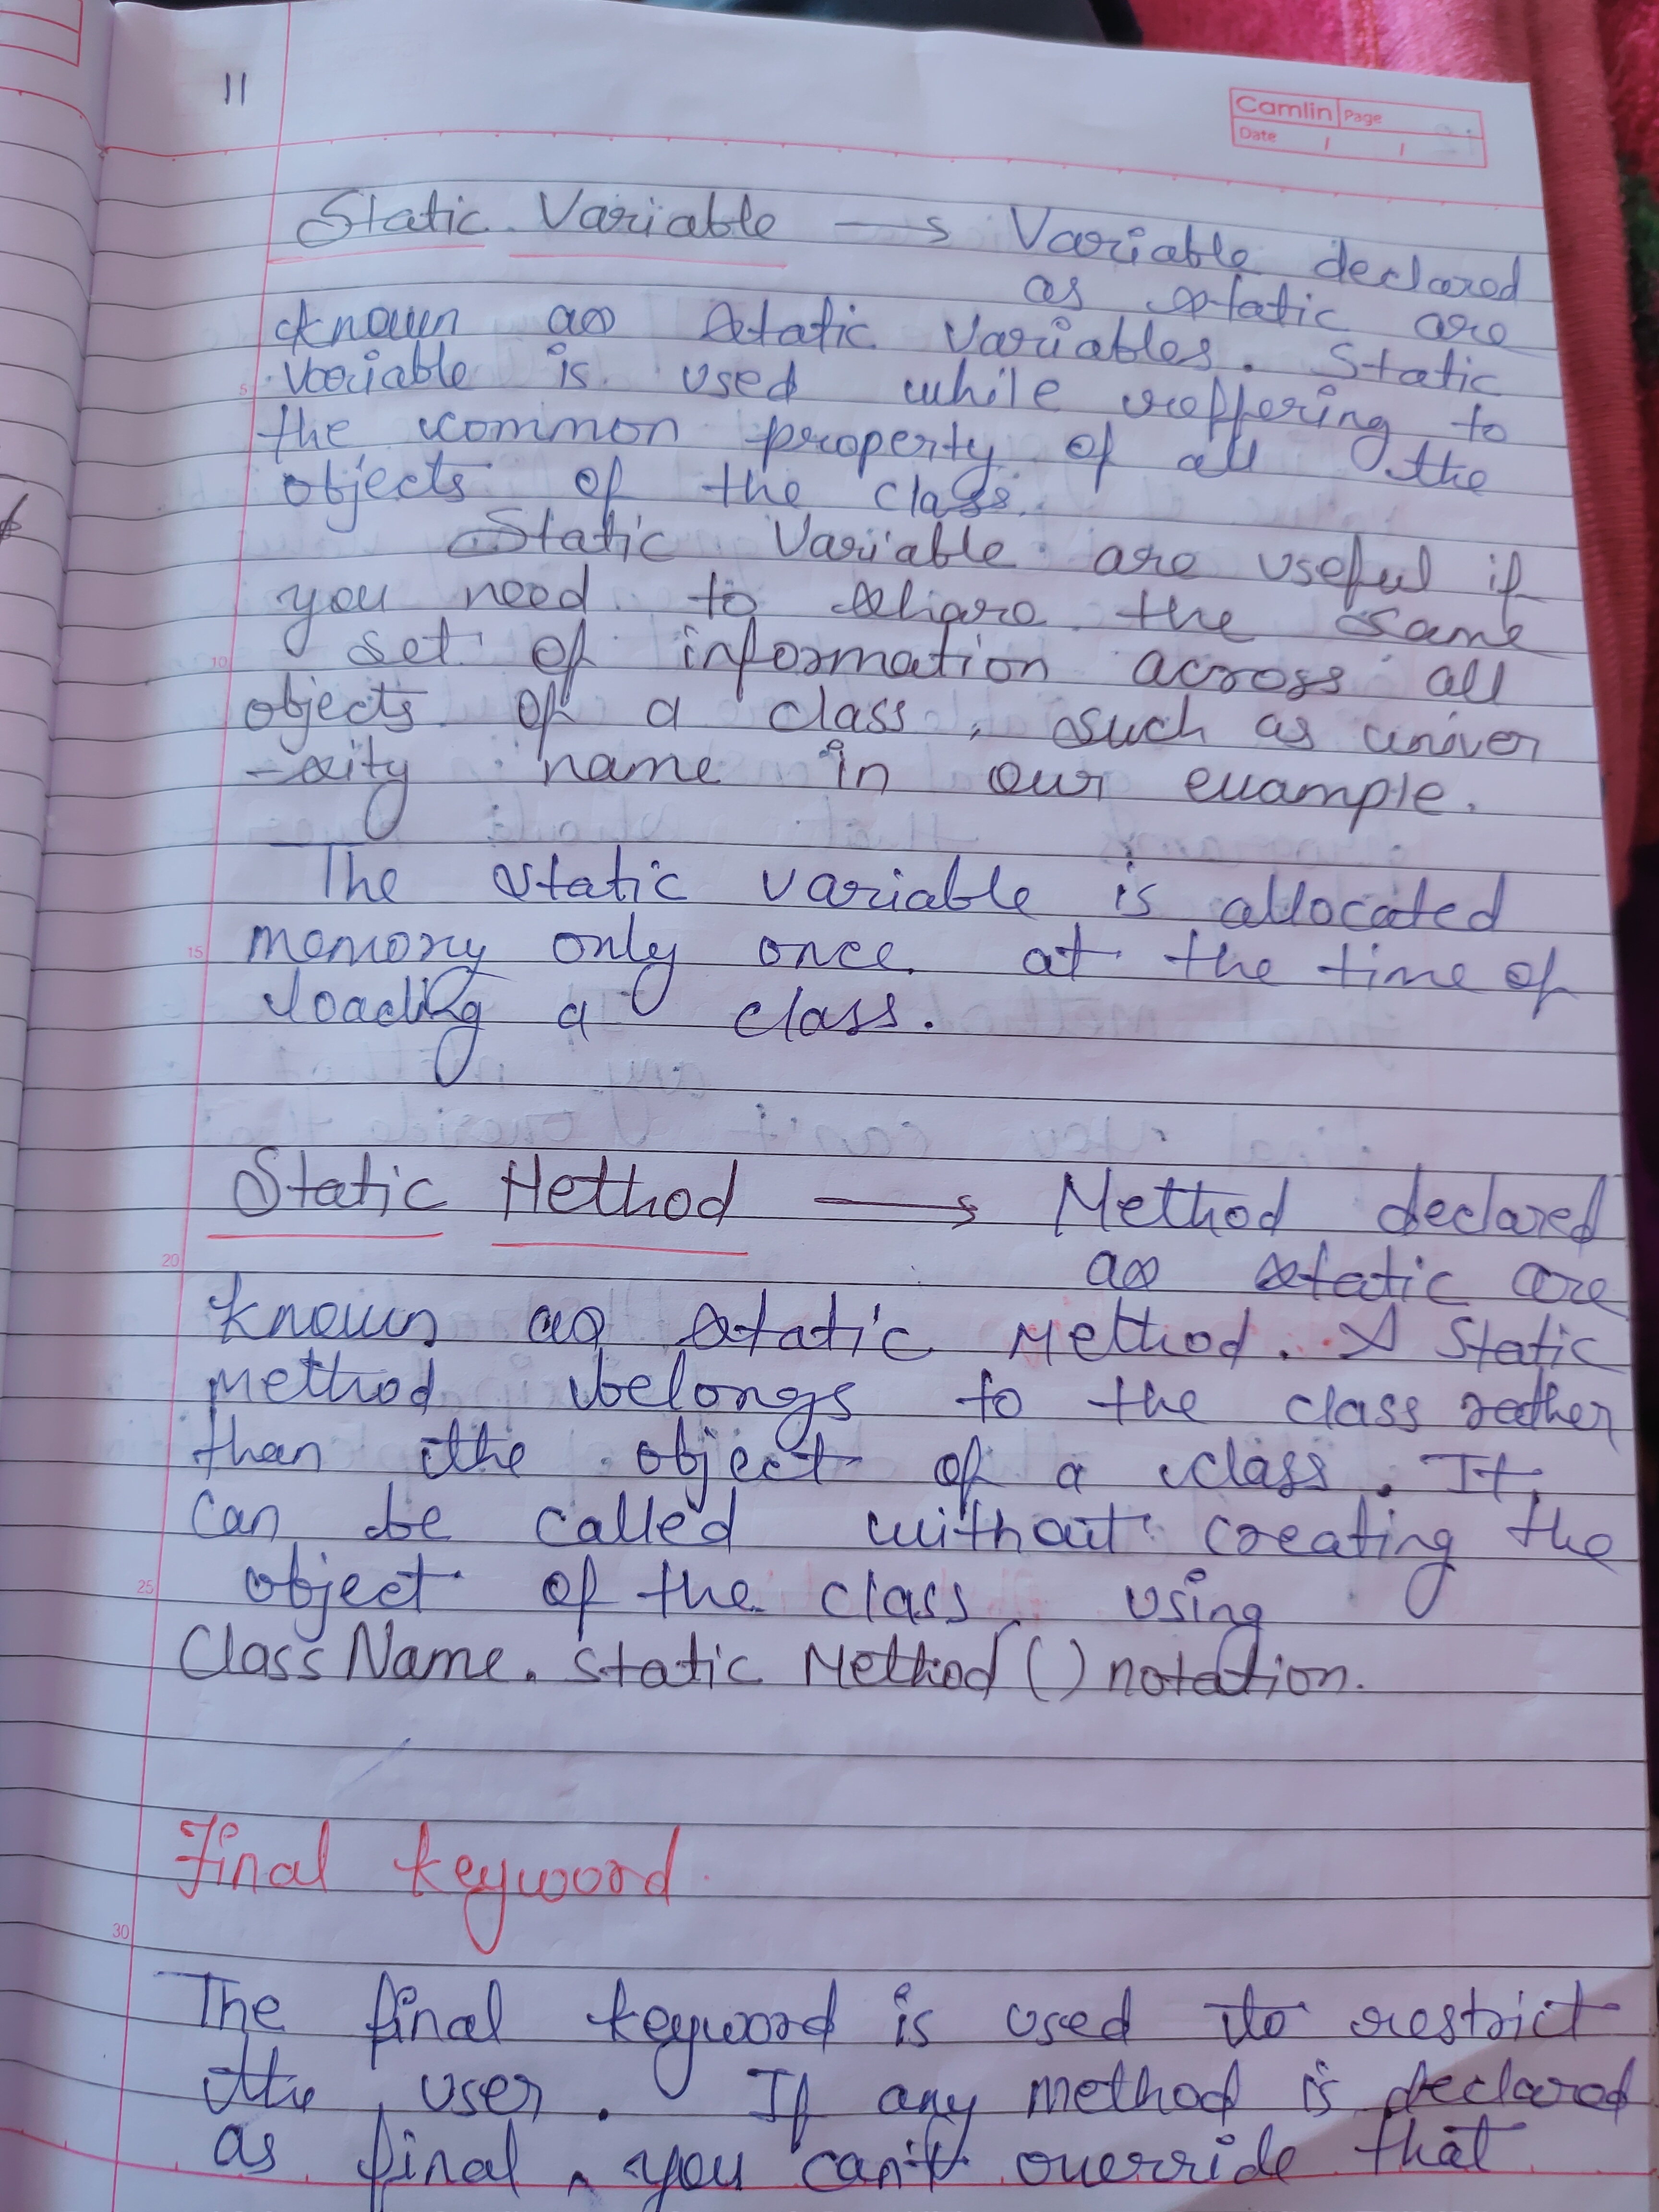 11
Camlin Page
Date
Static Variable → Variable declared
as static are
known as static variables. Static
variable is used while reffering to
the common property of all the
objects of the class.
Static Variable are useful if
you need to share the same
set of information across all
objects of a class, such as univer
-sity name in our example.
The static variable is allocated
memory only once at the time of
loading a class.
Static Method → Method declared
as static are
known as static Method. A Static
method belongs to the class rather
than the object of a class. It
can be called without creating the
object of the class using
ClassName.staticMethod() notation.
Final keyword
The final keyword is used to restrict
the user. If any method is declared
as final, you can't override that
5
10
15
20
25
30